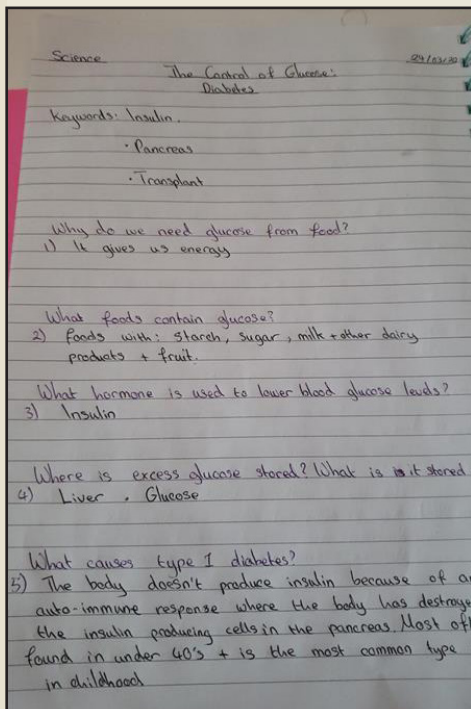 Science 29/03/20
The Control of Glucose:
Diabetes
Keywords: Insulin.
• Pancreas
• Transplant
Why do we need glucose from food?
1) It gives us energy
What foods contain glucose?
2) foods with: starch, sugar, milk + other dairy
products + fruit.
What hormone is used to lower blood glucose levels?
3) Insulin
Where is excess glucose stored? What is it stored
4) Liver. Glucose
What causes type 1 diabetes?
5) The body doesn't produce insulin because of
auto-immune response where the body has
the insulin producing cells in the pancreas. Most
found in under 40's + is the most common type
in childhood